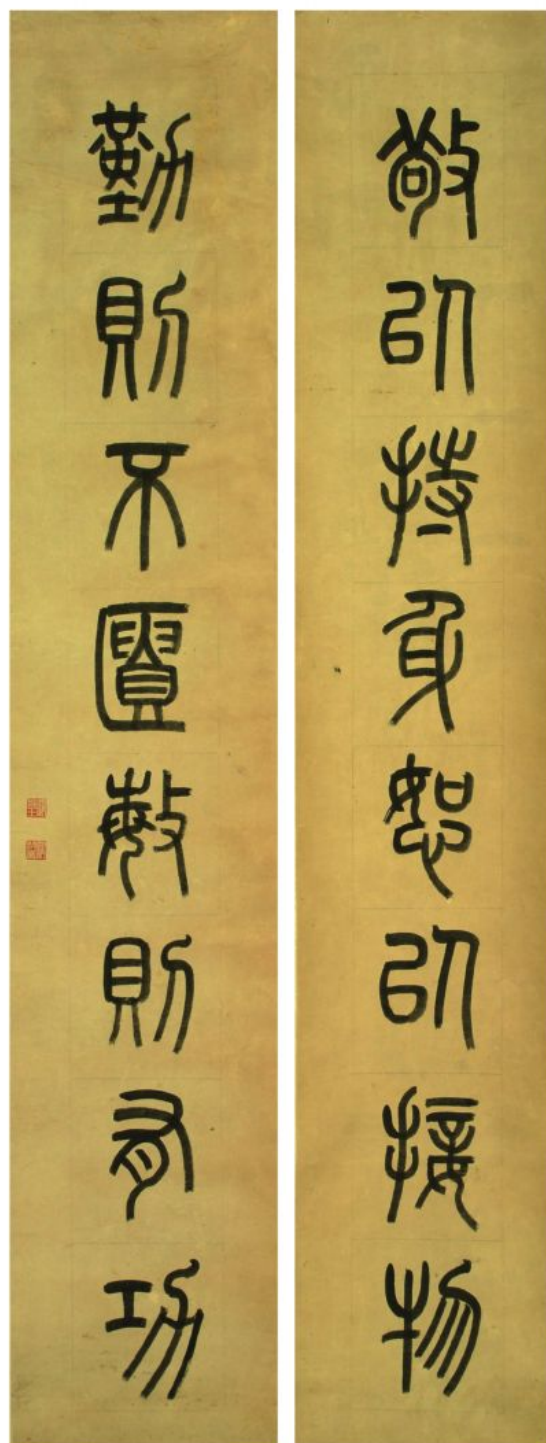 敬以持身恕以接物
勤則不匱敏則有功